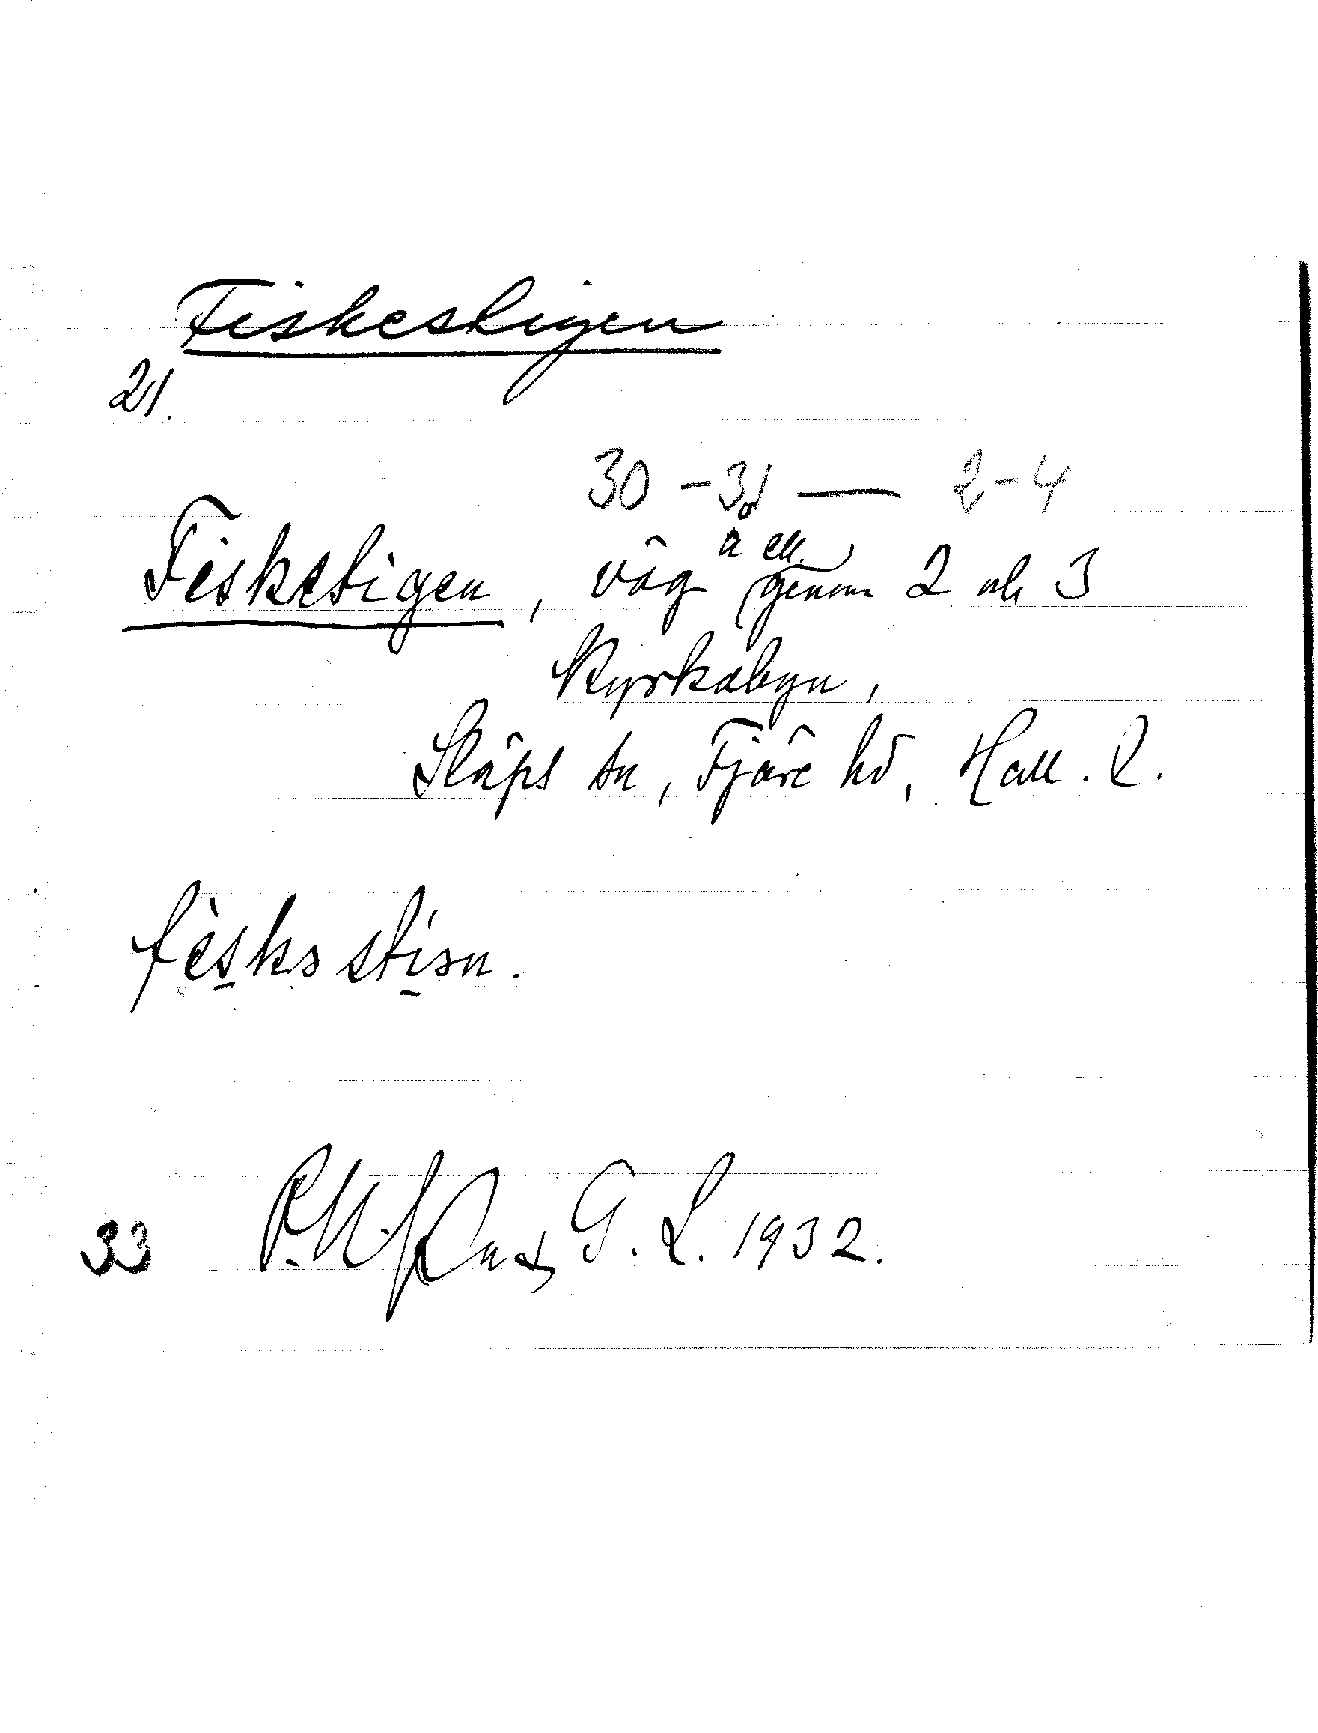 Fiskestigen
21.
30 - 31 — 2-4
å ell.
Fiskestigen, väg (genom) 2 och 3
Kyrkobyn,
Släps sn, Fjäre hd, Hall. L.
fèskə stiən.
33 G. L. 1932.